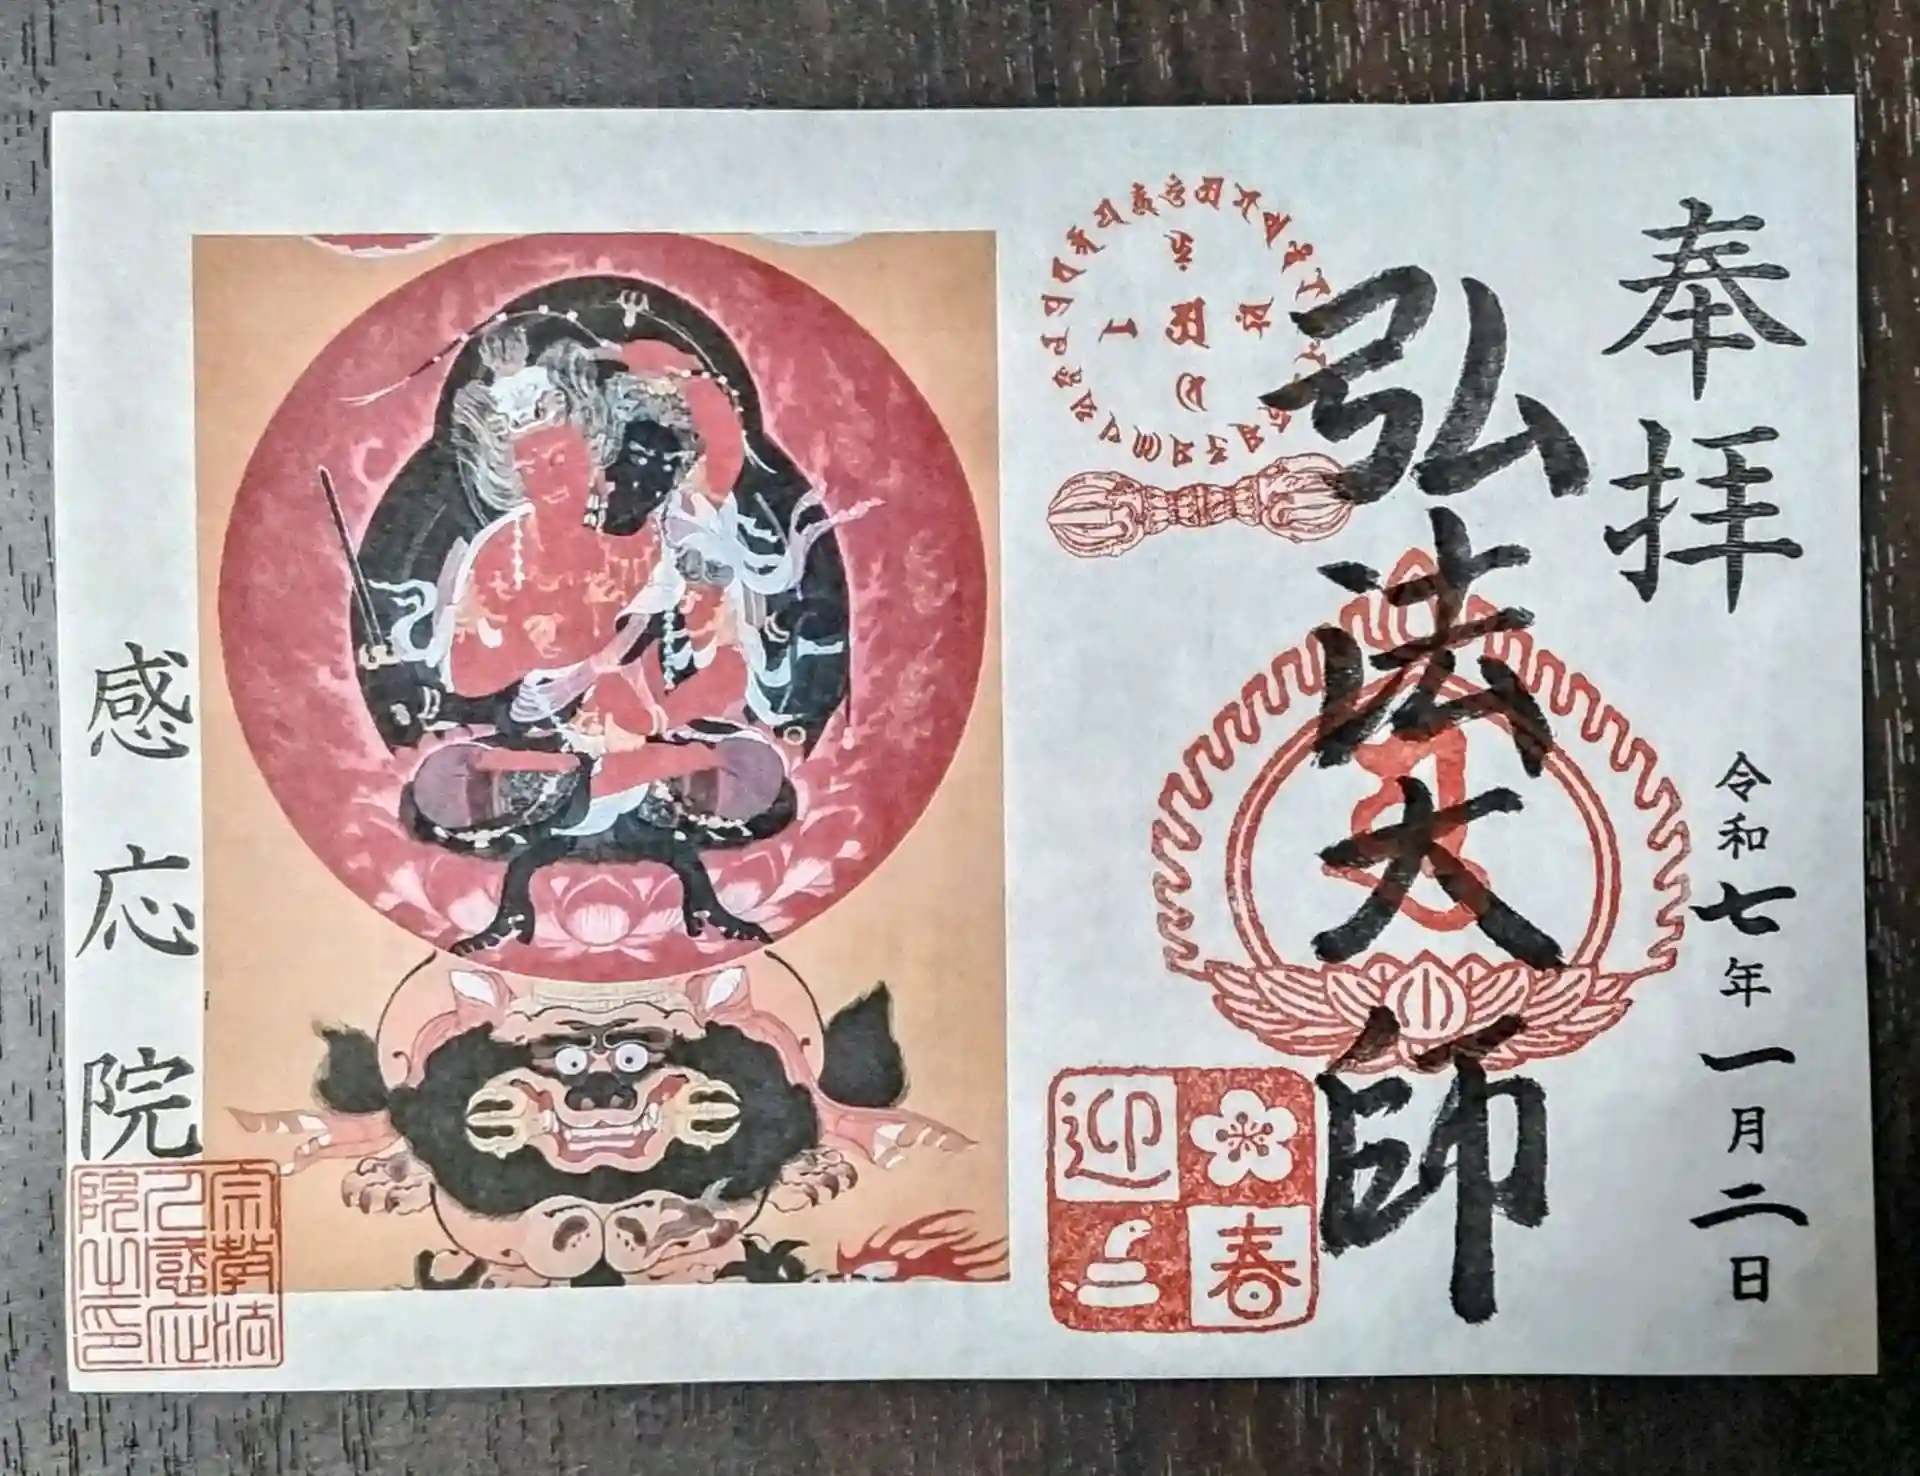 奉拝
令和七年一月二日
弘法大師
迎春
感応院
宗教法人感応院之印